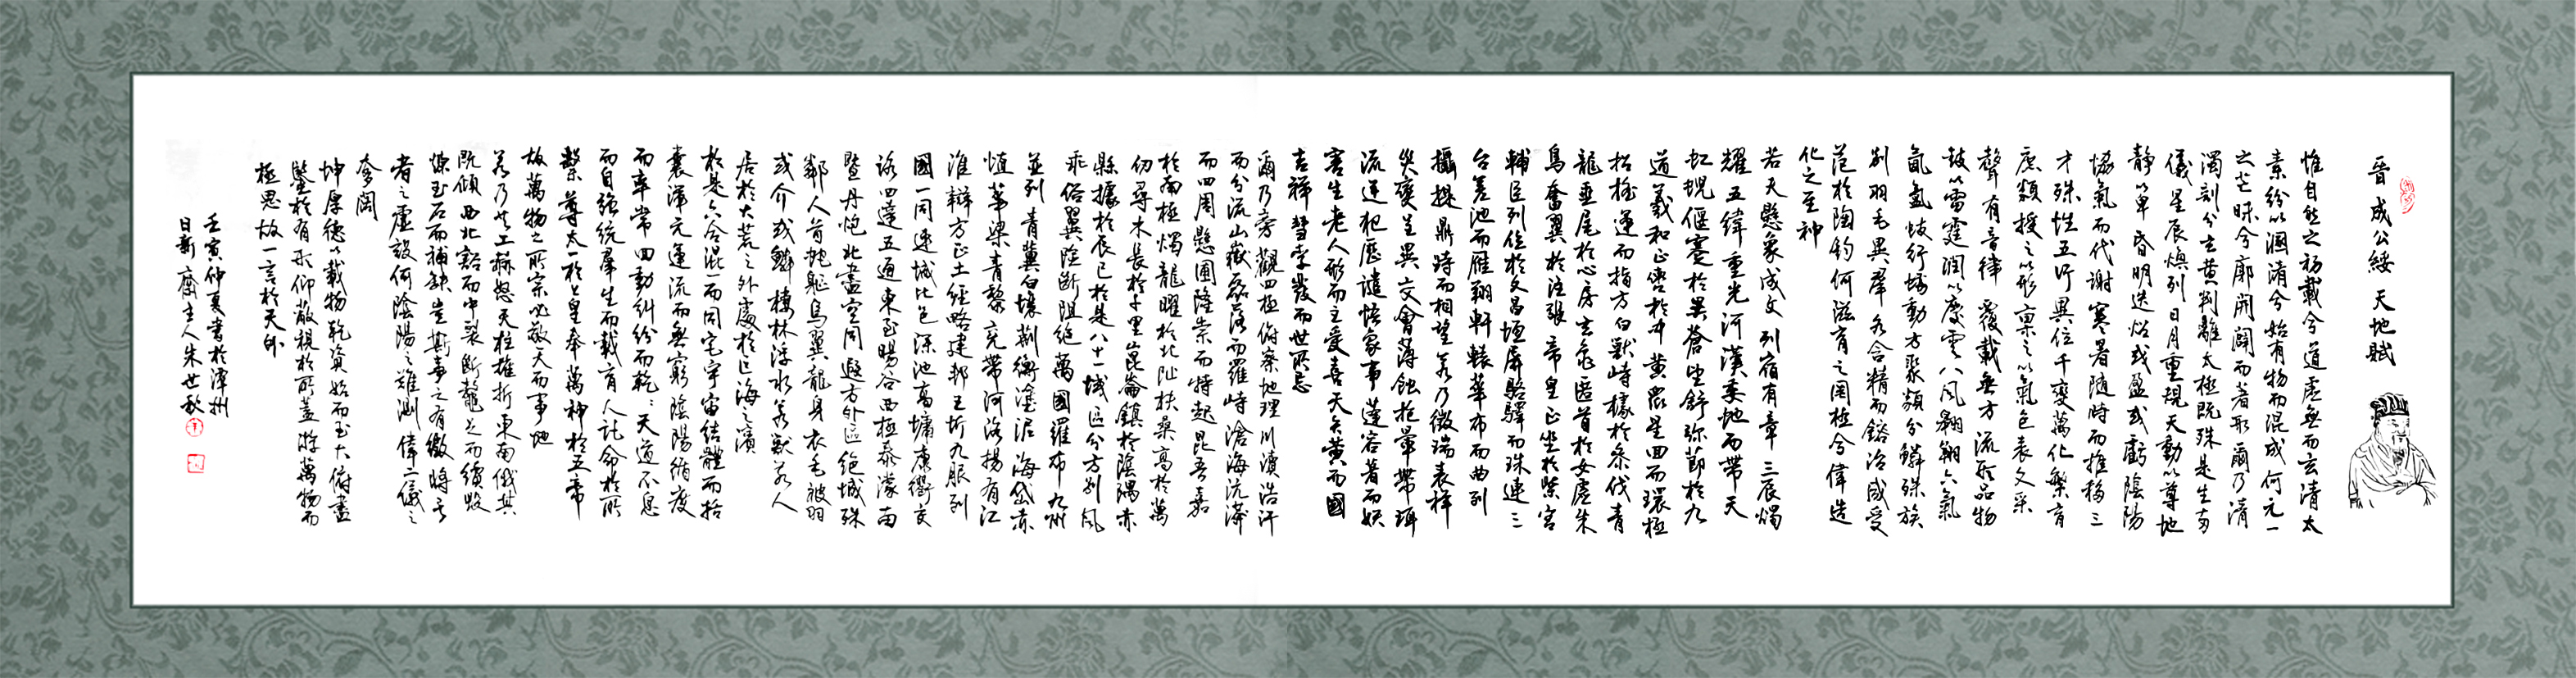 晉 成公綏 天地賦
惟自然之初載兮道虛無而玄清太
素紛以溷淆兮始有物而混成何元一
之芒昧兮廓開闢而著形爾乃清
濁剖分玄黃判離太極既殊是生兩
儀星辰煥列日月重規天動以尊地
靜以卑昏明迭炤或盈或虧陰陽
協氣而代謝寒暑隨時而推移三
才殊性五行異位千變萬化繁育
庶類授之以形稟之以氣色表文采
聲有音律覆載無方流形品物
鼓以雷霆潤以慶雲八風翱翔六氣
氤氳蚑行蠕動方聚類分鱗殊族
別羽毛異羣各含精而鎔冶咸受
范於陶鈞何滋育之罔極兮偉造
化之至神
若夫懸象成文列宿有章三辰燭
耀五緯重光河漢委蛇而帶天
虹蜺偃蹇於昊蒼望舒弥節於九
道羲和正轡於中黃眾星回而環極
招搖運而指方白獸峙據於參伐青
龍垂尾於心房玄龜匿首於女虛朱
鳥奮翼於注張帝皇正坐於紫宮
輔臣列位於文昌垣屏駱驛而珠連三
台差池而雁翔軒轅華布而曲列
攝提鼎峙而相望若乃徵瑞表祥
災變呈異交會薄蝕抱暈帶珥
流逆犯歷譴悟象事蓬容著而妖
害生老人形而主受喜天矢黃而國
吉祥彗孛發而世所忌
爾乃旁觀四極俯察地理川瀆浩汗
而分流山嶽磊落而羅峙滄海沆漭
而四周懸圃隆崇而特起昆吾嘉
於南極燭龍曜於北阯扶桑高於萬
仞尋木長於千里崑崙鎮於陰隅赤
縣據於辰巳於是八十一域區分方別風
乖俗異險斷阻絕萬國羅布九州
並列青冀白壤荊衡塗泥海岱赤
埴華梁青黎兗帶河洛揚有江
淮辯方正土經略建邦王圻九服列
國一同連城比邑深池高墉康衢交
路四達五通東至暘谷西極泰濛南
暨丹炮北盡空同遐方外區絕域殊
鄰人首蛇軀鳥翼龍身衣毛被羽
或介或鱗棲林浮水若獸若人
居於大荒之外處於巨海之濱
於是六合混一而同宅宇宙結體而括
囊渾元運流而無窮陰陽循度
而率常回動糾紛而乾乾天道不息
而自强統羣生而載育人託命於所
繫尊太一於上皇奉萬神於五帝
故萬物之所宗必敬天而事地
若乃共工赫怒天柱摧折東南俄其
既傾西北豁而中裂斷鼇足而續毀
煉玉石而補缺豈斯事之有徵將言
者之虛設何陰陽之難測偉二儀之
奓闊
坤厚德以載物乾資始而至大俯盡
鑒於有形仰蔽視於所蓋游萬物而
極思故一言於天外
壬寅仲夏書於潭州
日新齋主人朱世